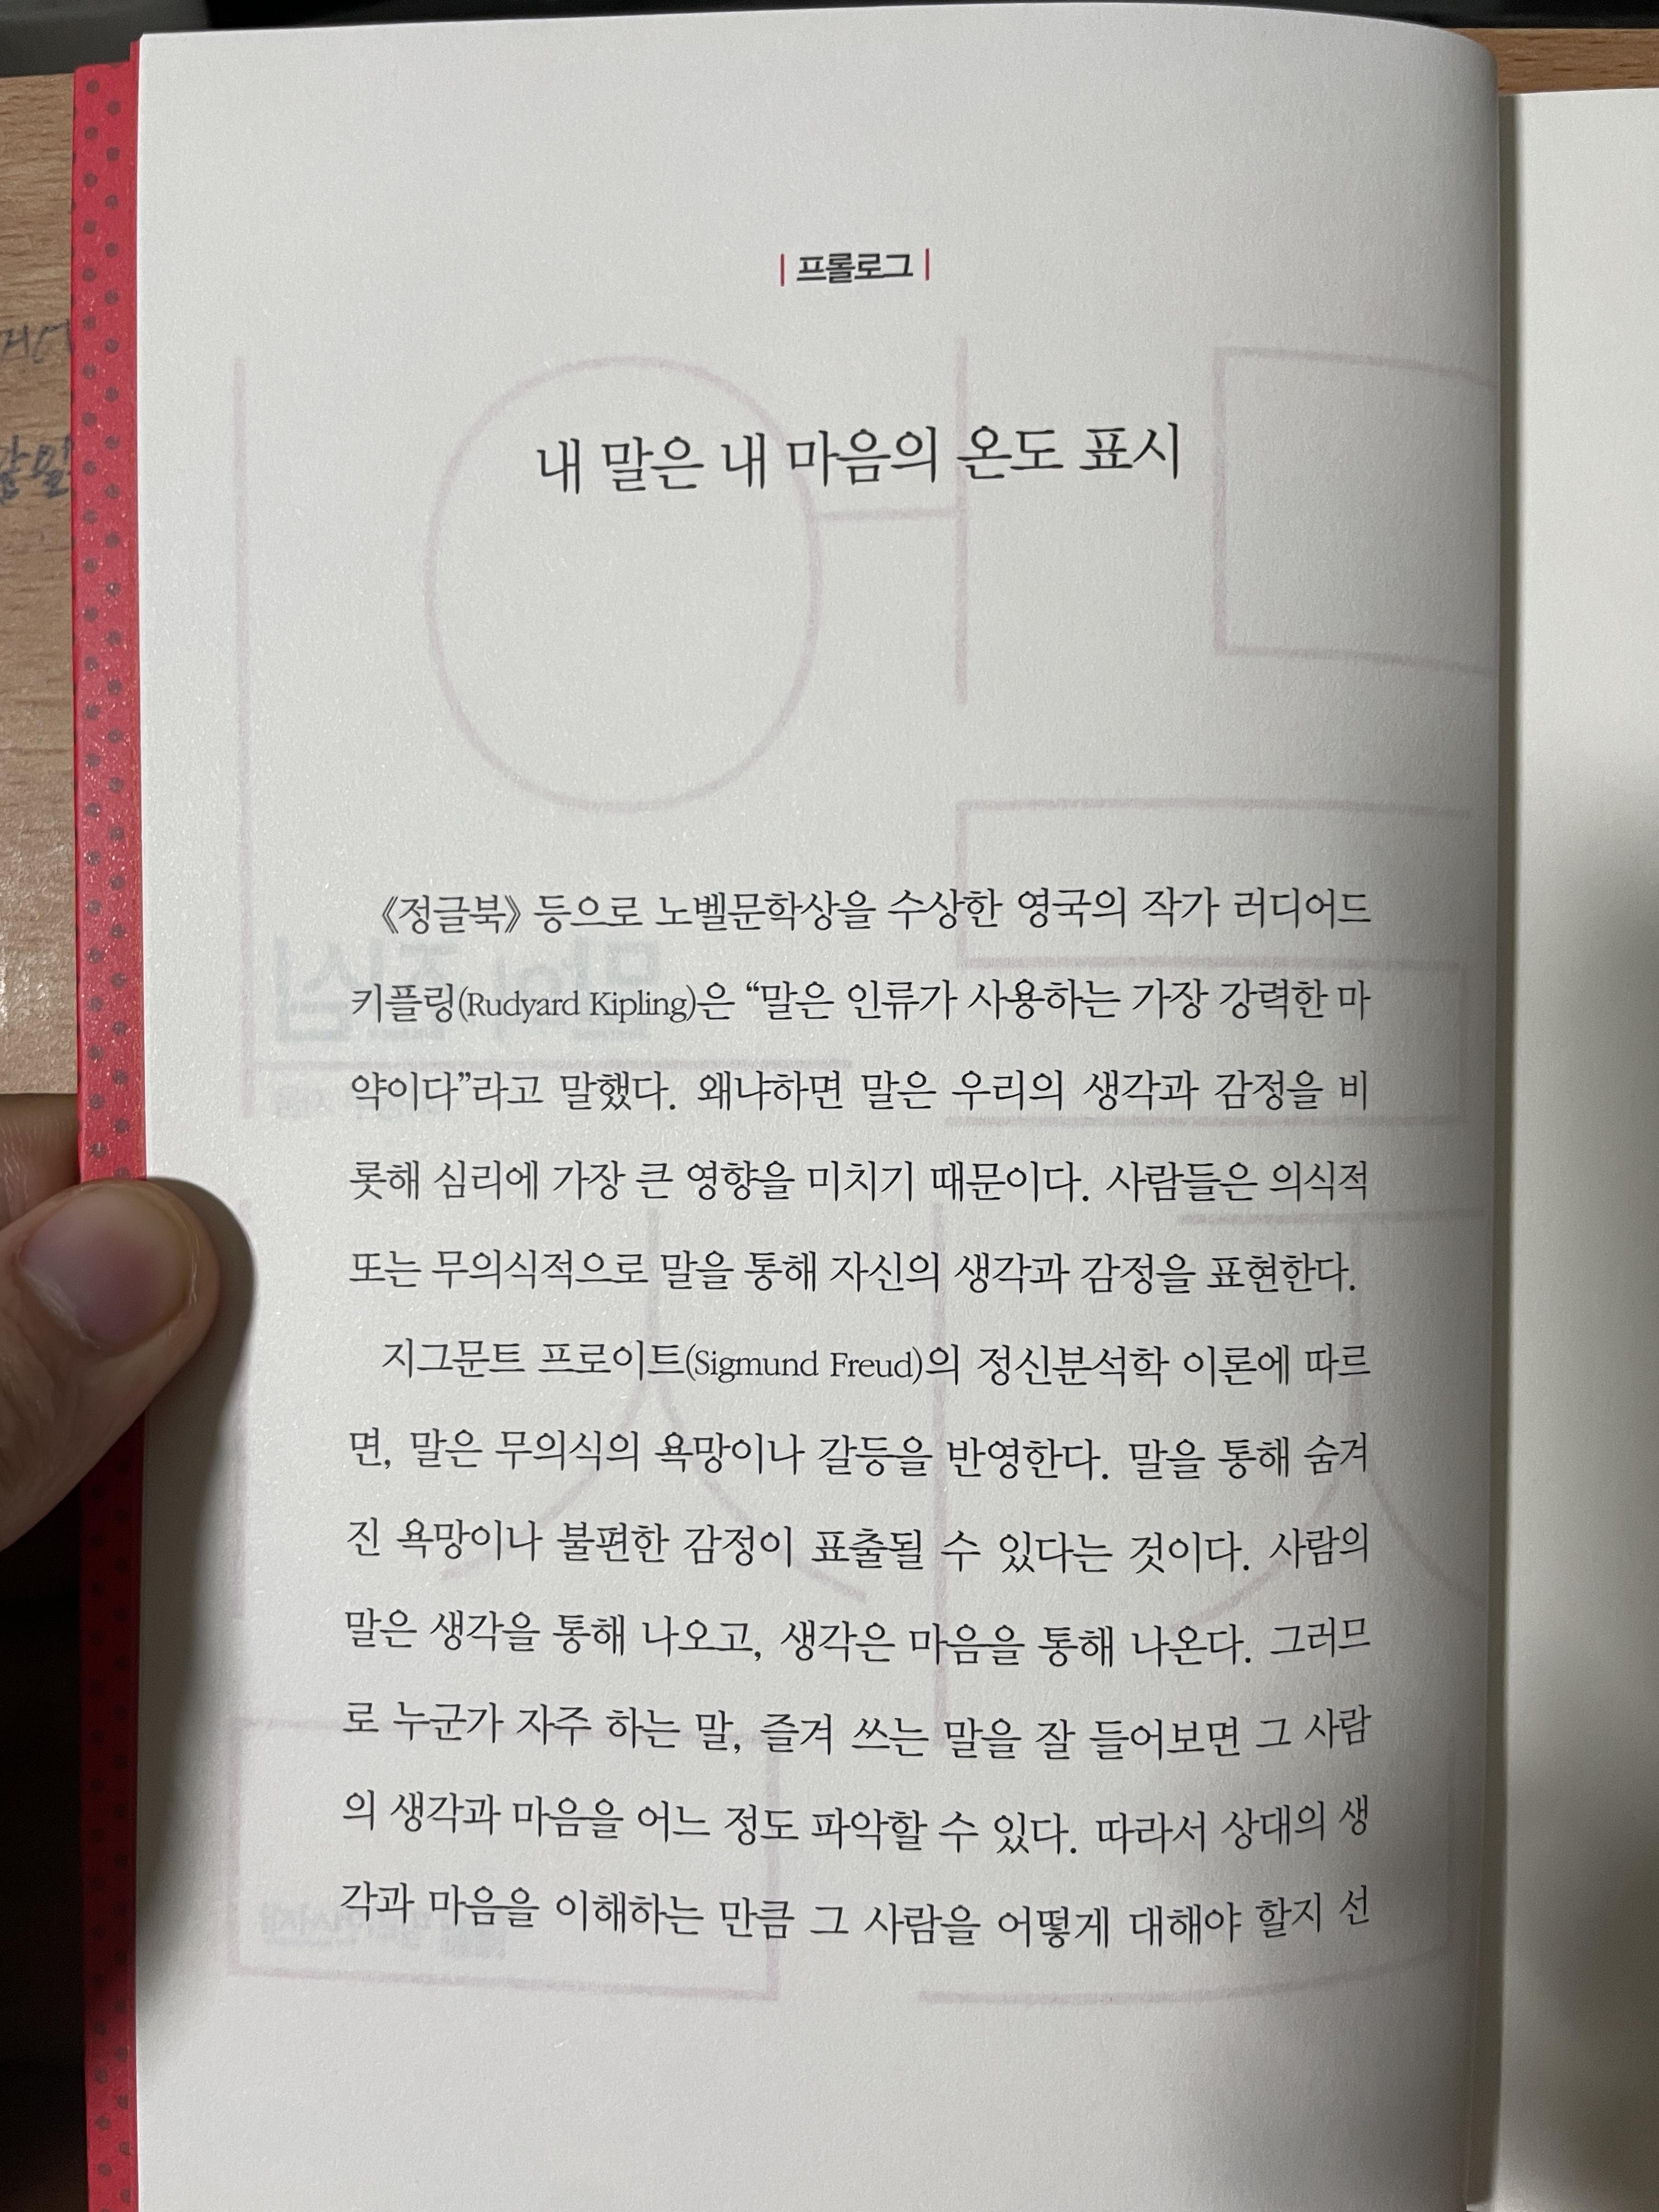 | 프롤로그 |
내 말은 내 마음의 온도 표시
《정글북》 등으로 노벨문학상을 수상한 영국의 작가 러디어드
키플링(Rudyard Kipling)은 “말은 인류가 사용하는 가장 강력한 마
약이다”라고 말했다. 왜냐하면 말은 우리의 생각과 감정을 비
롯해 심리에 가장 큰 영향을 미치기 때문이다. 사람들은 의식적
또는 무의식적으로 말을 통해 자신의 생각과 감정을 표현한다.
지그문트 프로이트(Sigmund Freud)의 정신분석학 이론에 따르
면, 말은 무의식의 욕망이나 갈등을 반영한다. 말을 통해 숨겨
진 욕망이나 불편한 감정이 표출될 수 있다는 것이다. 사람의
말은 생각을 통해 나오고, 생각은 마음을 통해 나온다. 그러므
로 누군가 자주 하는 말, 즐겨 쓰는 말을 잘 들어보면 그 사람
의 생각과 마음을 어느 정도 파악할 수 있다. 따라서 상대의 생
각과 마음을 이해하는 만큼 그 사람을 어떻게 대해야 할지 선